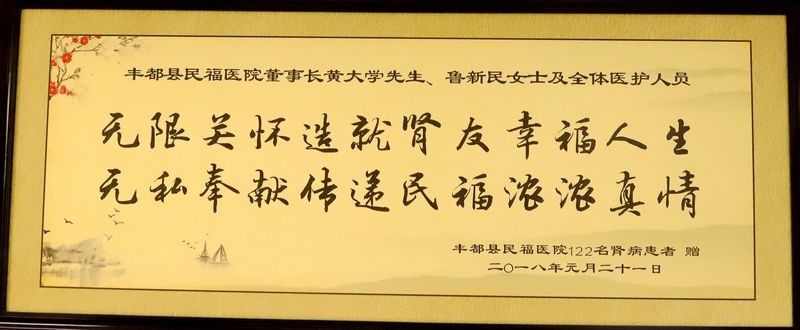 丰都县民福医院董事长黄大学先生、鲁新民女士及全体医护人员
无限关怀造就肾友幸福人生
无私奉献传递民福浓浓真情
丰都县民福医院122名肾病患者 赠
二〇一八年元月二十一日